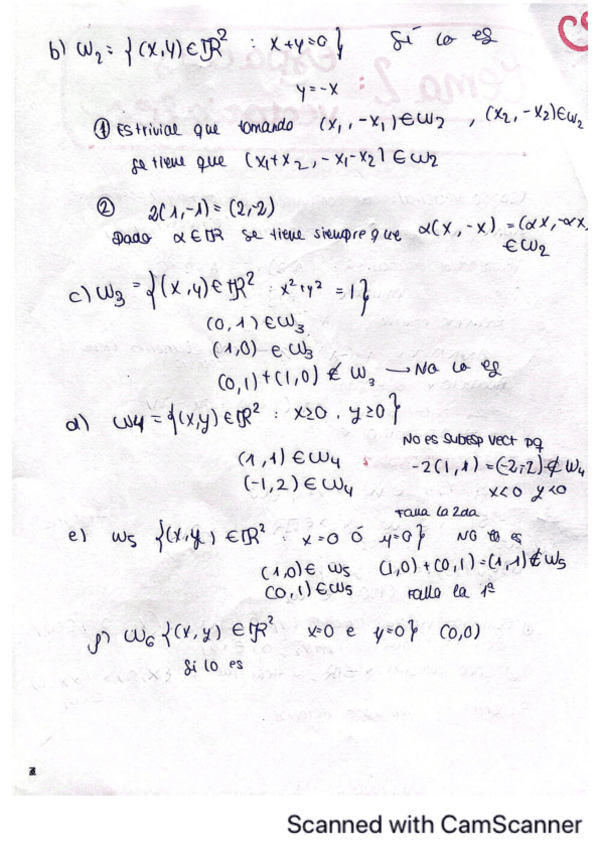 b) W₂ = {(x,y) ∈ ℝ² : x+y=0} Sí lo es
y=-x
① Es trivial que tomando (x₁,-x₁) ∈ W₂ , (x₂,-x₂) ∈ W₂
se tiene que (x₁+x₂, -x₁-x₂) ∈ W₂
② 2(1,-1) = (2,-2)
Dado α ∈ ℝ se tiene siempre que α(x,-x) = (αx,-αx
∈ W₂
c) W₃ = {(x,y) ∈ ℝ² : x²+y² = 1}
(0,1) ∈ W₃
(1,0) ∈ W₃
(0,1)+(1,0) ∉ W₃ → No lo es
d) W4 = {(x,y) ∈ ℝ² : x≥0 , y≥0}
No es SUBESP VECT DQ
(1,1) ∈ W4 -2(1,1) = (-2,-2) ∉ W4
(-1,2) ∈ W4 x<0 y<0
Falla la 2da
e) W5 {(x,y) ∈ ℝ² : x=0 ó y=0} NO lo es
(1,0) ∈ W5 (1,0)+(0,1)=(1,1) ∉ W5
(0,1) ∈ W5 Falla la 1ª
f) W6 {(x,y) ∈ ℝ² x=0 e y=0} (0,0)
Sí lo es
Scanned with CamScanner